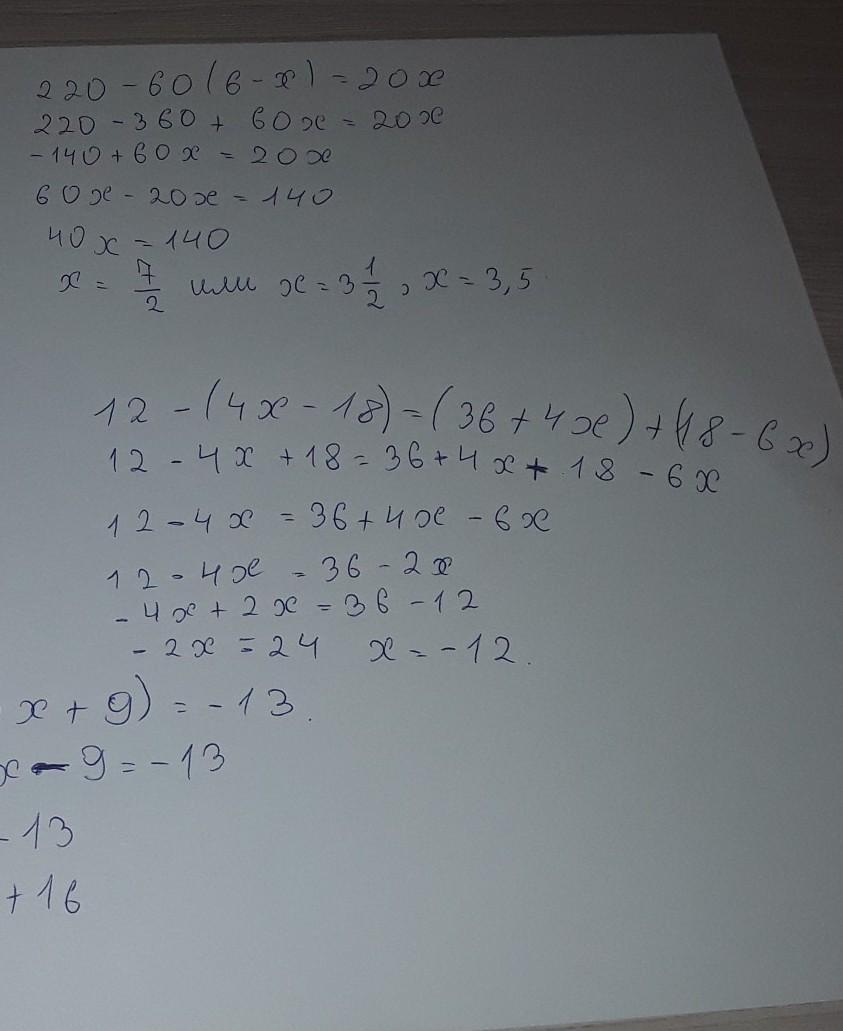 220 - 60(6 - x) = 20x
220 - 360 + 60x = 20x
-140 + 60x = 20x
60x - 20x = 140
40x = 140
x = 7/2 или x = 3 1/2, x = 3,5
12 - (4x - 18) = (36 + 4x) + (18 - 6x)
12 - 4x + 18 = 36 + 4x + 18 - 6x
12 - 4x = 36 + 4x - 6x
12 - 4x = 36 - 2x
-4x + 2x = 36 - 12
-2x = 24 x = -12.
x + 9) = -13.
x - 9 = -13
- 13
+ 16